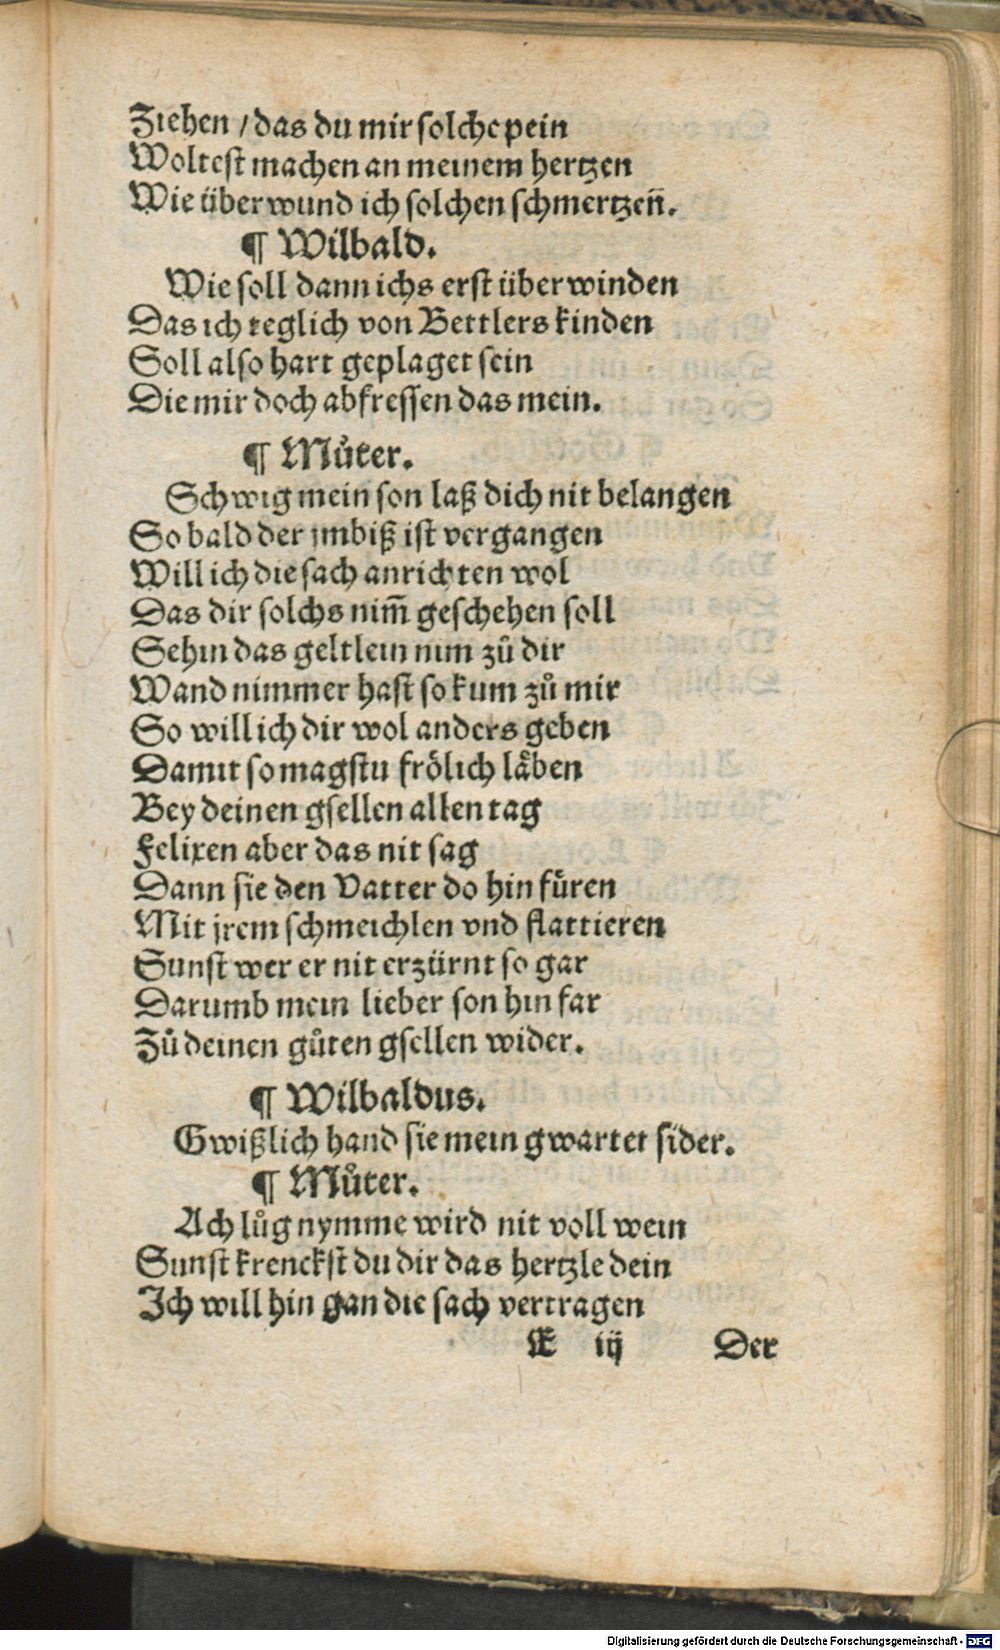 Ziehen / das du mir solche pein
Woltest machen an meinem hertzen
Wie überwund ich solchen schmertzen̄.
¶ Wilbald.
Wie soll dann ichs erst überwinden
Das ich teglich von Bettlers kinden
Soll also hart geplaget sein
Die mir doch abfressen das mein.
¶ Můter.
Schwig mein son laß dich nit belangen
So bald der jmbiß ist vergangen
Will ich die sach anrichten wol
Das dir solchs nim̄ geschehen soll
Sehin das geltlein nim zů dir
Wand nimmer hast so kum zů mir
So will ich dir wol anders geben
Damit so magstu frölich läben
Bey deinen gsellen allen tag
Felixen aber das nit sag
Dann sie den Vatter do hin füren
Mit jrem schmeichlen vnd flattieren
Sunst wer er nit erzürnt so gar
Darumb mein lieber son hin far
Zů deinen gůten gsellen wider.
¶ Wilbaldus.
Gwißlich hand sie mein gwartet sider.
¶ Můter.
Ach lůg nymme wird nit voll wein
Sunst krenckst du dir das hertzle dein
Ich will hin gan die sach vertragen
E iij Der
Digitalisierung gefördert durch die Deutsche Forschungsgemeinschaft - DFG